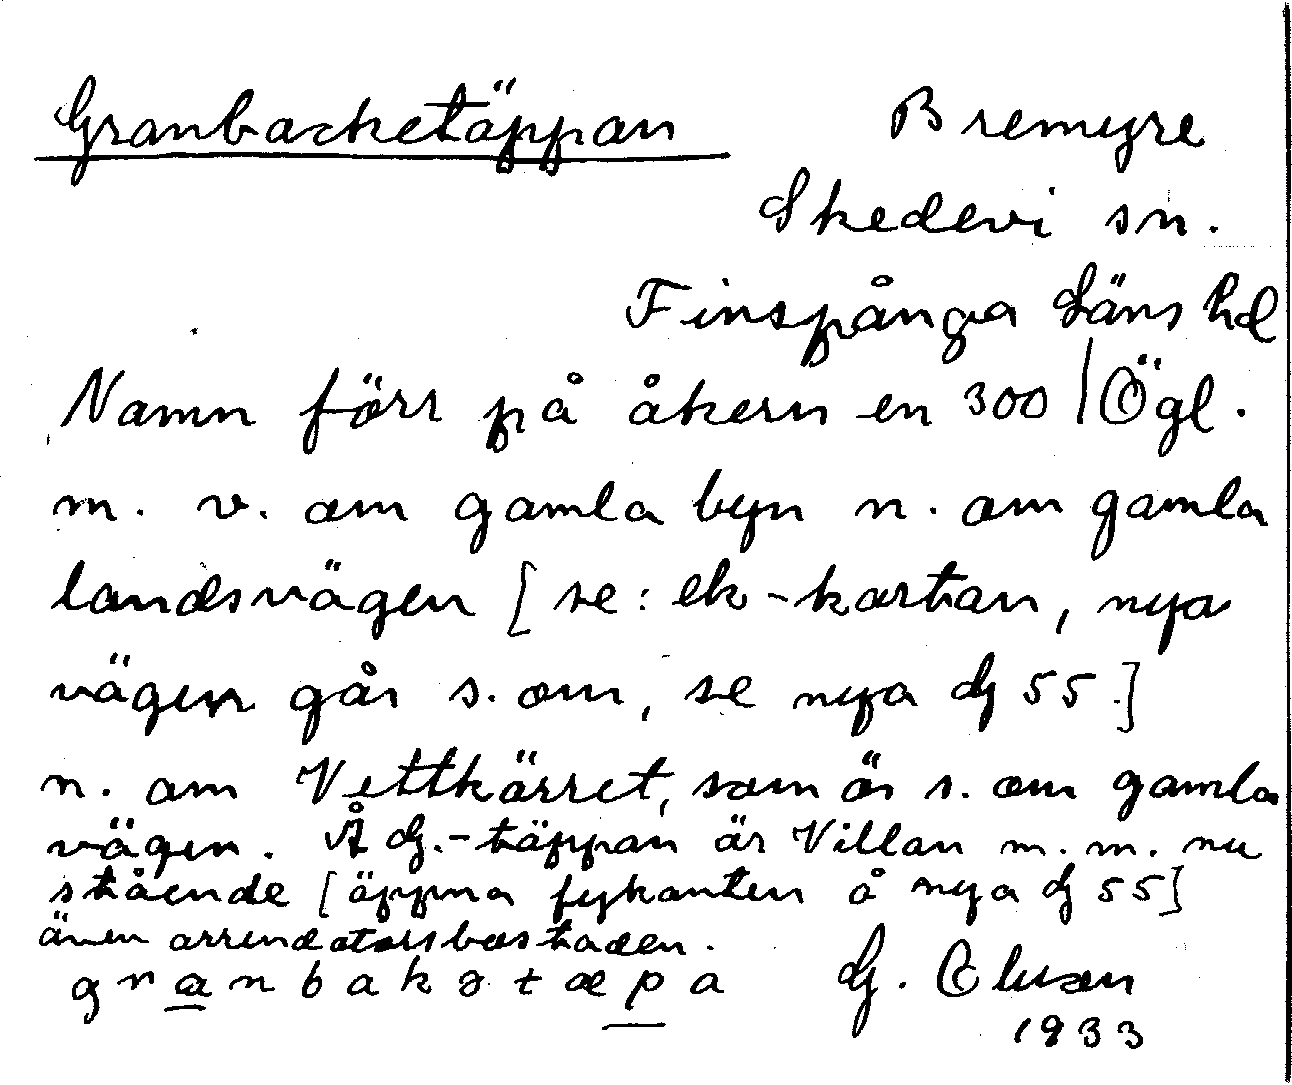 Granbacketäppan Bremyre
Skedevi sn.
Finspånga Läns hd
Namn förr på åkern en 300 | Ögl.
m. v. om gamla byn n. om gamla
landsvägen [se: ek-kartan, nya
vägen går s. om, se nya G 55.]
n. om Vettkärret, som är s. om gamla
vägen. Å G.-täppan är Villan m. m. nu
stående [öppna fykanten å nya G 55]
även arrendatorsbostaden.
granbakətæpa G. Olusen
1933